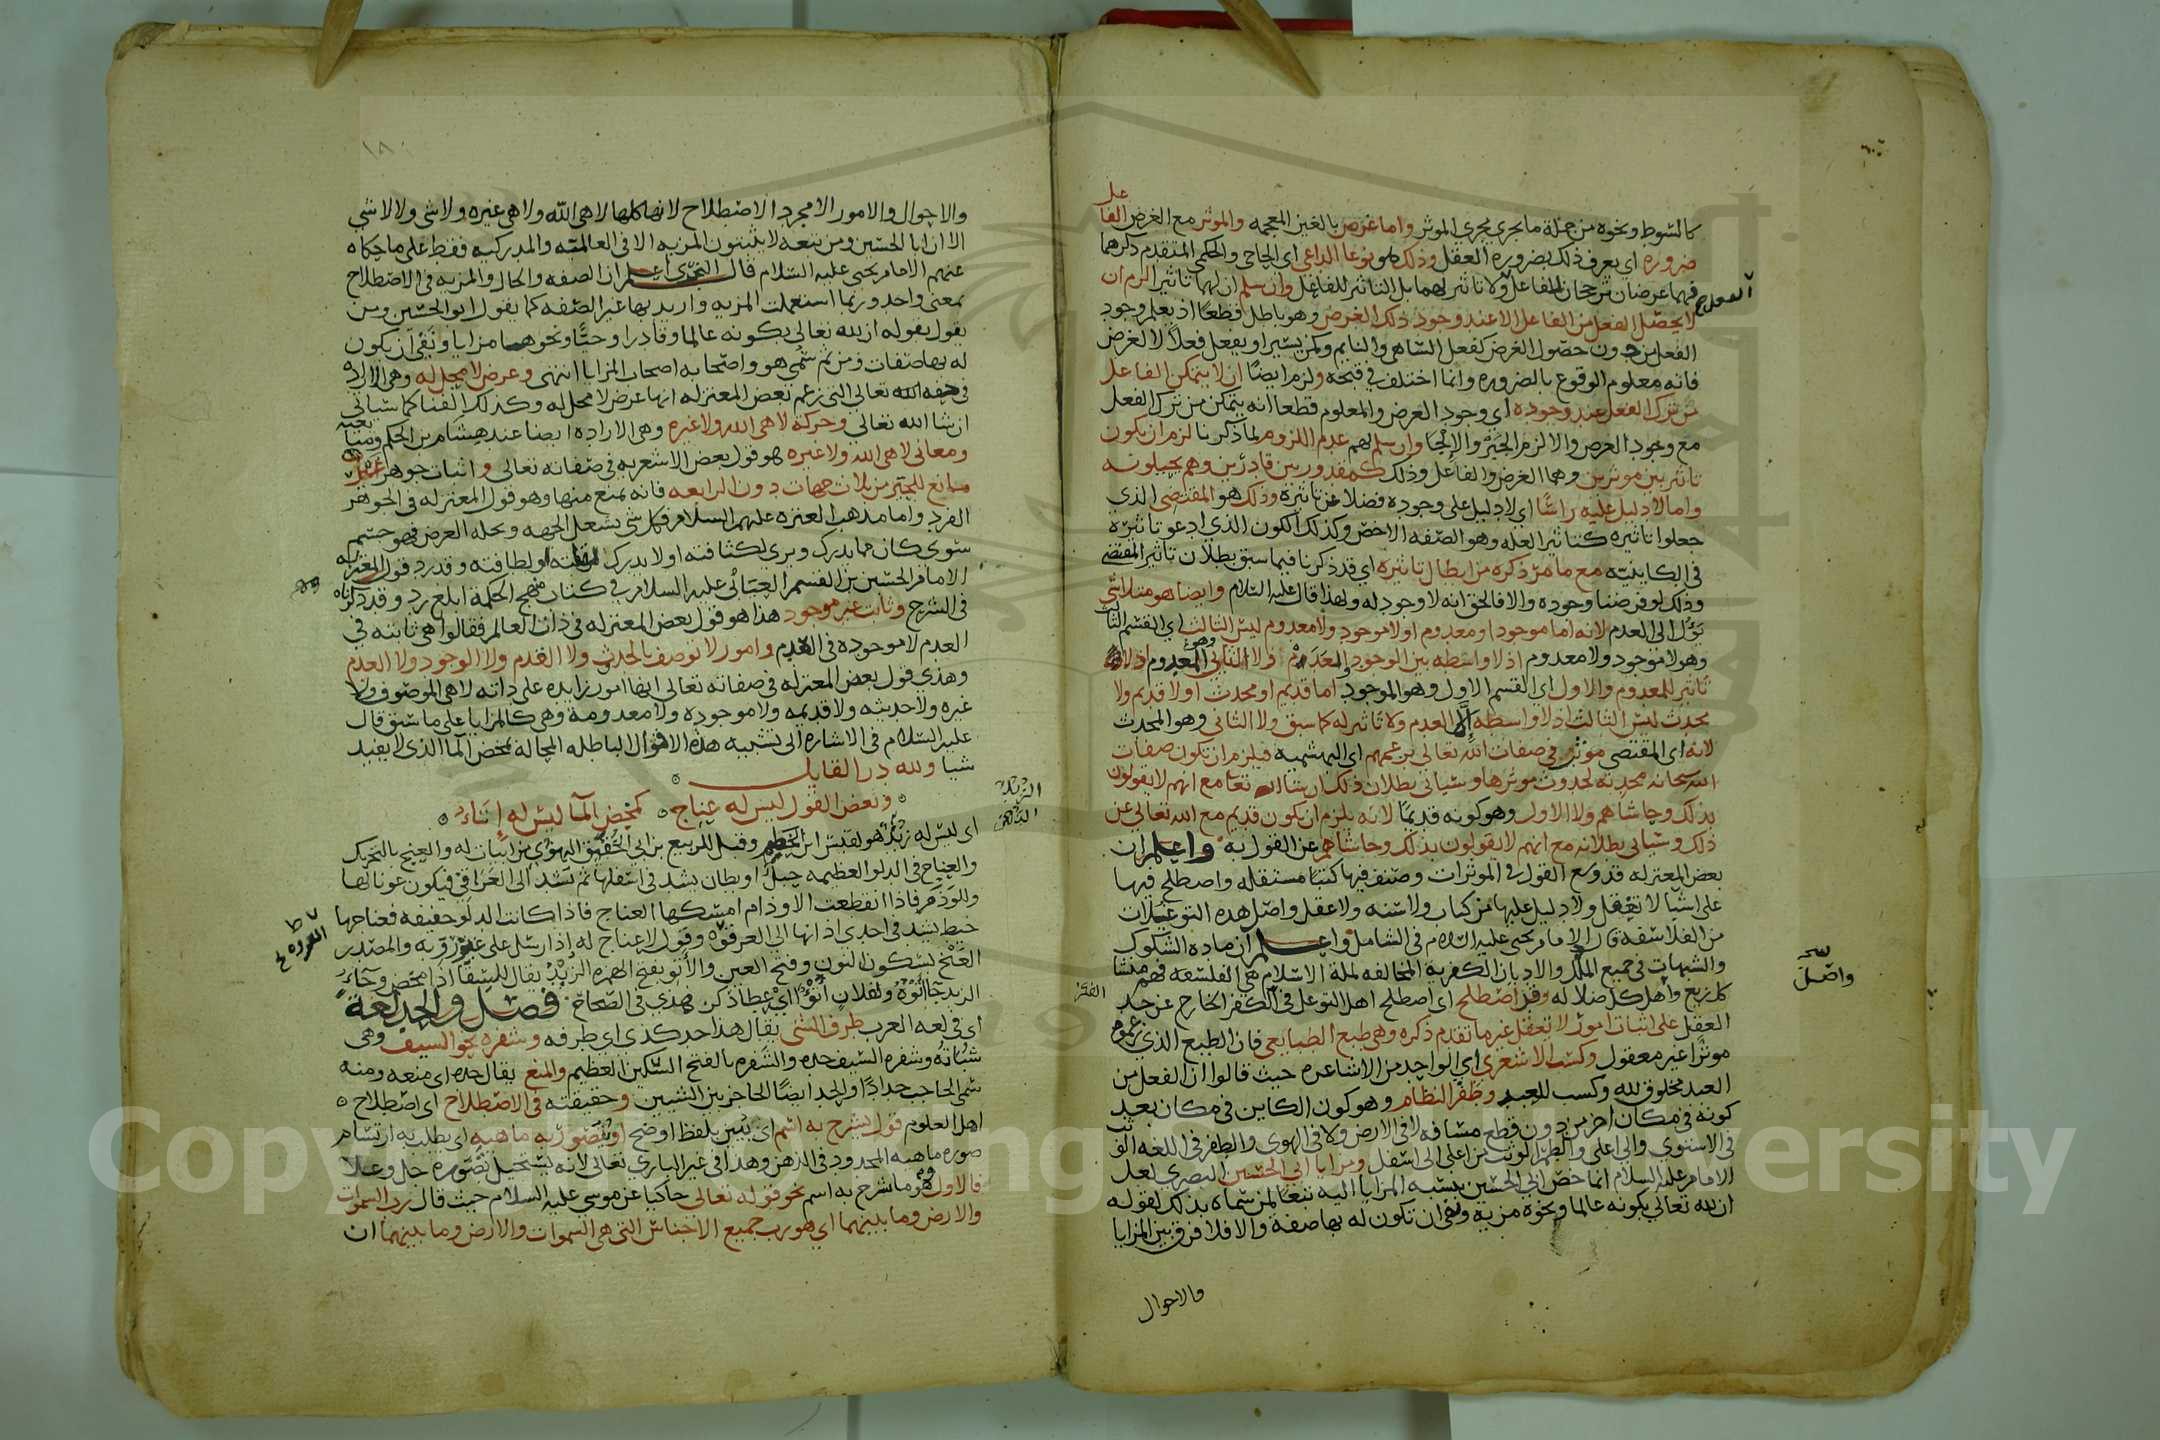 كالشوط ونحوه من جملة ما يجري مجرى الموثر واما غرض بالغين المعجمه والموثر مع الغرض الفاعل
ضروره اي يعرف ذلك بضرورة العقل وذلك هو نوعا الداعي اي الحاجي والحكمي المتقدم ذكرهما
فهما غرضان مرجحان للفاعل ولا تاثير لهما بل التاثير للفاعل وان سلم ان لهما تاثير الزم ان
لا يحصل الفعل من الفاعل الا عند وجود ذلك الغرض وهو باطل قطعا اذ يعلم وجود
الفعل من دون حصول الغرض كفعل الساهي والنايم وكمن يسير او يفعل فعلا لا لغرض
فانه معلوم الوقوع بالضروره وانما اختلف في قبحه ولزم ايضا ان لا يتمكن الفاعل
من ترك الفعل عند وجوده اي وجود الغرض والمعلوم قطعا انه يتمكن من ترك الفعل
مع وجود الغرض والا لزم الجبر والالجا وان سلم لهم عدم اللزوم لما ذكرنا لزم ان يكون
تاثير بين موثرين وهما الغرض والفاعل وذلك كمقدور بين قادرين وهم يحيلونه
واما لا دليل عليه راسا اي لا دليل على وجوده فضلا عن تاثيره وذلك هو المقتضى الذي
جعلوا تاثيره كتاثير العله وهو الصفه الاخص وكذلك الكون الذي ادعو تاثيره
في الكاينيه مع ما مر ذكره من ابطال تاثيره اي قد ذكرنا فيما سبق بطلان تاثير المقتضي
وذلك لو فرضنا وجوده والا فالحق انه لا وجود له ولهذا قال عليه السلام وايضا هو متلاشي
يؤل الى العدم لانه اما موجود او معدوم او لا موجود ولا معدوم ليس الثالث اي القسم الثالث
وهو لا موجود ولا معدوم اذ لا واسطه بين الوجود والعدم ولا الثاني وهو المعدوم اذ لا
تاثير للمعدوم والاول اي القسم الاول وهو الموجود اما قديم او محدث او لا قديم ولا
محدث ليس الثالث اذ لا واسطه الا العدم ولا تاثير له كما سبق ولا الثاني وهو المحدث
لانه اي المقتضي موثر في صفات الله تعالى بزعمهم اي البهشميه فيلزم ان تكون صفات
الله سبحانه محدثه لحدوث موثرها وسياتي بطلان ذلك ان شا الله تعالى مع انهم لا يقولون
بذلك وحاشاهم ولا الاول وهو كونه قديما لانه يلزم ان يكون قديم مع الله تعالى عن
ذلك وسياتي بطلانه مع انهم لا يقولون بذلك وحاشاهم عن القول به واعلم ان
بعض المعتزله قد وسع القول في الموثرات وصنف فيها كتبا مستقله واصطلح فيها
على اشيا لا تعقل ولا دليل عليها من كتاب ولا سنه ولا عقل واصل هذه التوغلات
من الفلاسفه قال الامام يحيى عليه السلام في الشامل واعلم ان ماده الشكوك
والشبهات في جميع الملل والاديان الكفريه المخالفه لملة الاسلام هي الفلسفه فهم منشا
كل زيغ واهل كل ضلاله وقد اصطلح اي اصطلح اهل التوغل في الكفر الخارج عن حد
العقل على اثبات امور لا تعقل غير ما تقدم ذكره وهي طبع الطبايعي فان الطبع الذي زعموه
موثرا غير معقول وكسب الاشعري اي الواحد من الاشاعره حيث قالوا ان الفعل من
العبد مخلوق لله وكسب للعبد وظفر النظام وهو كون الكاين في مكان بعيد
كونه في مكان اخر من دون قطع مسافه لا في الارض ولا في الهوى والطفر في اللغه الوثب
في الاستوى والى اعلى والطمر الوثب من اعلى الى اسفل ومزايا ابي الحسين البصري لعل
الامام عليه السلام انما خص ابي الحسين بنسبه المزايا اليه تبعا لمن سماه بذلك لقوله
ان لله تعالى بكونه عالما ونحوه مزيه ونفى ان تكون له بها صفه والا فلا فرق بين المزايا
والاحوال
واصل
والاحوال والامور الا مجرد الاصطلاح لانها كلها لا هي الله ولا هي غيره ولا شي ولا لا شي
الا ان ابا الحسين ومن تبعه لا يثبتون المزيه الا في العالميه والمدركيه فقط على ما حكاه
عنهم الامام يحيى عليه السلام قال النجري اعلم ان الصفه والحال والمزيه في الاصطلاح
بمعنى واحد وربما استعملت المزيه واريد بها غير الصفه كما يقول ابو الحسين ومن
يقول بقوله ان لله تعالى بكونه عالما وقادرا وحيا ونحوهما مزايا ونفى ان يكون
له بها صفات ومن ثم سمي هو واصحابه اصحاب المزايا انتهى وعرض لا محل له وهي الاراده
في حقه الله تعالى التي زعم بعض المعتزله انها عرض لا محل له وكذلك الفنا كما سياتي
ان شا الله تعالى وحركة لا هي الله ولا غيره وهي الاراده ايضا عند هشام بن الحكم ومن تبعه
ومعاني لا هي الله ولا غيره هو قول بعض الاشعريه في صفاته تعالى واثبات جوهر
مانع للحيز من ثلاث جهات دون الرابعه فانه يمنع منها وهو قول المعتزله في الجوهر
الفرد واما مذهب العتره عليهم السلام فكل شي يشغل الجهه ويحله العرض فهو جسم
سوى كان مما يدرك ويرى لكثافته او لا يدرك لقلته او لطافته وقد رد قول المعتزله
الامام الحسين بن القسم العياني عليه السلام في كتاب منهج الحكمة ابلغ رد وقد ذكرناه
في الشرح وثابت غير موجود هذا هو قول بعض المعتزله في ذات العالم فقالوا هي ثابته في
العدم لا موجوده في القدم وامور لا توصف بالحدث ولا القدم ولا الوجود ولا العدم
وهذي قول بعض المعتزله في صفاته تعالى ايضا امور زايده على ذاته لا هي الموصوف ولا
غيره ولا حديثه ولا قديمه ولا موجوده ولا معدومة وهي كالمزايا على ما سبق قال
عليه السلام في الاشاره الى تشبيه هذه الاقوال الباطله المحاله بمخض الما الذي لا يفيد
شيا ولله در القايل
وبعض القول ليس له عناج كمخض الما ليس له إتاء
اي ليس له زبد هو لقيس ابن الخطيم وقيل للربيع بن ابي الحقيق اليهودي من ابيات له والعنج بالتحريك
والعناج في الدلو العظيمه حبل او بطان يشد في اسفلها ثم يشد الى العراقي فيكون عونا لها
وللوذم فاذا انقطعت الاوذام امسكها العناج فاذا كانت الدلو خفيفه فعناجها
خيط يشد في احدى اذانها الى العرقوه وقول لا عناج له إذا ارسل على غير رويه والمصدر
العنج بسكون النون وفتح العين والأتو بفتح الهمزه الزبد يقال للسقا اذا مخض وجاء
الزبد جا أتوه ولفلان أتو اي عطا ذكر هذي في الصحاح فصل والحد لغة
اي في لغه العرب طرف الشي يقال هذا حد كذى اي طرفه وشفره نحو السيف وهي
شباته وشفره السيف حده والشفره بالفتح السكين العظيم والمنع يقال حده اي منعه ومنه
سمي الحاجب حدادا والحد ايضا الحاجز بين الشيين وحقيقته في الاصطلاح اي اصطلاح
اهل العلوم قول يشرح به اسم اي يبين بلفظ اوضح او يتصور به ماهيه اي يطلب به ارتسام
صوره ماهيه المحدود في الذهن وهذا في غير الباري تعالى لانه يستحيل تصوره جل وعلا
فالاول وهو ما شرح به اسم نحو قوله تعالى حاكيا عن موسى عليه السلام حيث قال رب السموات
والارض وما بينهما اي هو رب جميع الاجناس التي هي السموات والارض وما بينهما ان
Copyright © King Saud University